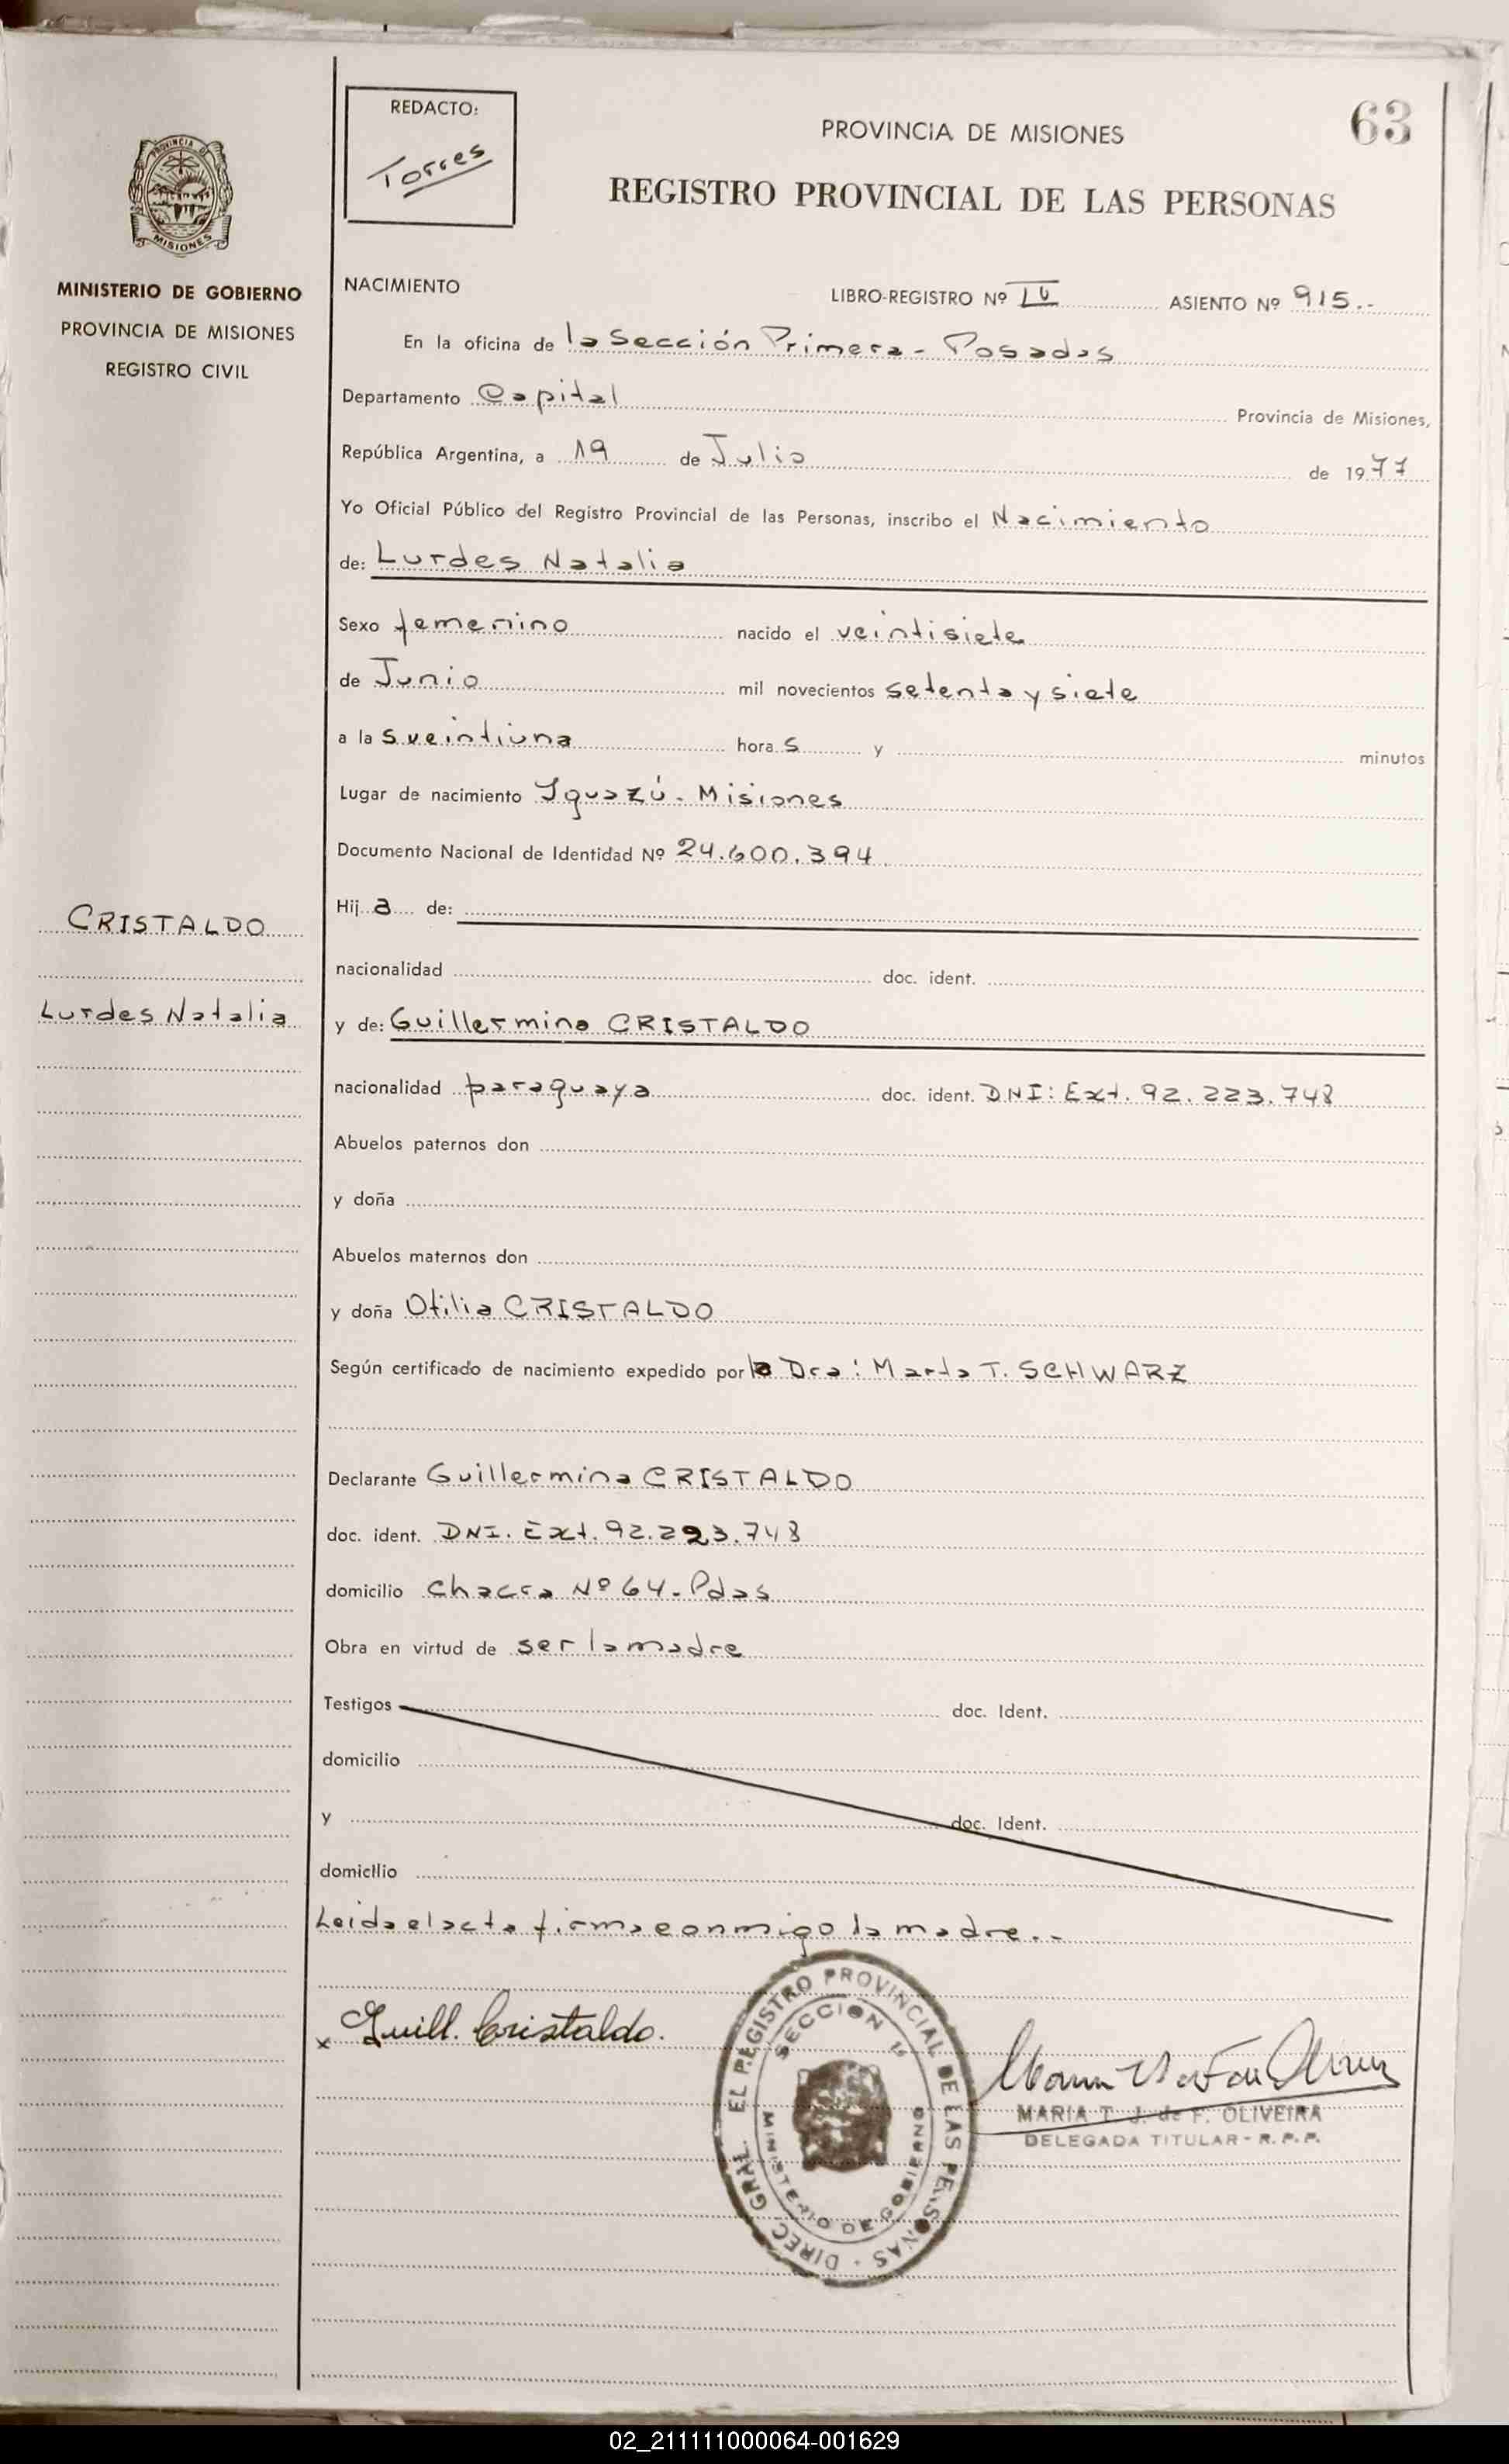 63
REDACTO:
Torres
PROVINCIA DE MISIONES
REGISTRO PROVINCIAL DE LAS PERSONAS
PROVINCIA DE
MISIONES
MINISTERIO DE GOBIERNO
PROVINCIA DE MISIONES
REGISTRO CIVIL
NACIMIENTO LIBRO-REGISTRO Nº IV ASIENTO Nº 915.-
En la oficina de la Sección Primera - Posadas
Departamento Capital Provincia de Misiones,
República Argentina, a 19 de Julio de 1977
Yo Oficial Público del Registro Provincial de las Personas, inscribo el Nacimiento
de: Lurdes Natalia
Sexo femenino nacido el veintisiete
de Junio mil novecientos setenta y siete
a la s veintiuna hora s y minutos
Lugar de nacimiento Iguazú - Misiones
Documento Nacional de Identidad Nº 24.600.394
Hij a de:
CRISTALDO
nacionalidad doc. ident.
Lurdes Natalia
y de: Guillermina CRISTALDO
nacionalidad paraguaya doc. ident. DNI: Ext. 92.223.748
Abuelos paternos don
y doña
Abuelos maternos don
y doña Otilia CRISTALDO
Según certificado de nacimiento expedido por la Dra: Marta T. SCHWARZ
Declarante Guillermina CRISTALDO
doc. ident. DNI. Ext. 92.223.748
domicilio Chacra Nº 64 - Pdas
Obra en virtud de ser la madre
Testigos doc. Ident.
domicilio
y doc. Ident.
domicilio
Leida el acta firma conmigo la madre.-
x Guill. Cristaldo.
DIREC. GRAL. EL REGISTRO PROVINCIAL DE LAS PERSONAS
SECCION 1ª
MINISTERIO DE GOBIERNO
MARIA T. J. de F. OLIVEIRA
DELEGADA TITULAR - R. P. P.
02_211111000064-001629